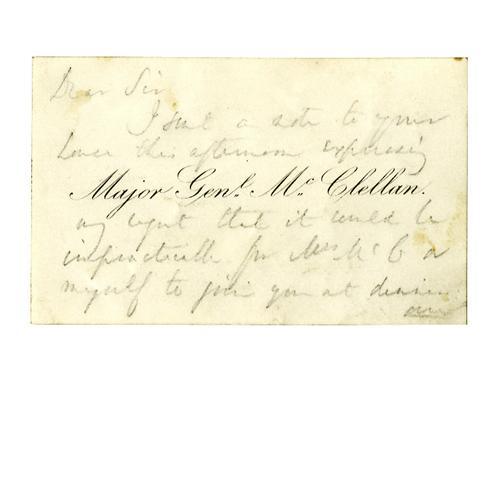 Dear Sir
I sent a note to your
house this afternoon expressing
Major Genl. Mc. Clellan.
my regret that it would be
impracticable for Mrs McC or
myself to join you at dinner
over